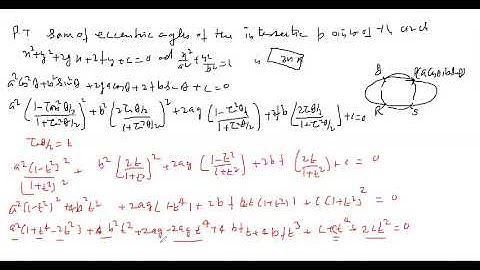 P.T Sum of eccentric angles of the intersection points of the circle
x²+y²+2gx+2fy+c=0 and x²/a²+y²/b²=1 is 2nπ
a²cos²θ+b²sin²θ+2gacosθ+2fbsinθ+c=0
P(acosθ,bsinθ)
R S
a²[(1-tan²θ/2)/(1+tan²θ/2)]²+b²[2tanθ/2/(1+tan²θ/2)]²+2ag[(1-tan²θ/2)/(1+tan²θ/2)]+2fb[2tanθ/2/(1+tan²θ/2)]+c=0
tanθ/2=t
a²(1-t²)²/(1+t²)²+b²(2t/(1+t²))²+2ag(1-t²/1+t²)+2bf(2t/1+t²)+c=0
a²(1-t²)²+4b²t²+2ag(1-t⁴)+2bf 2t(1+t²)+c(1+t²)²=0
a²(1+t⁴-2t²)+4b²t²+2ag-2agt⁴+4bft+4bft³+c+ct⁴+2ct²=0